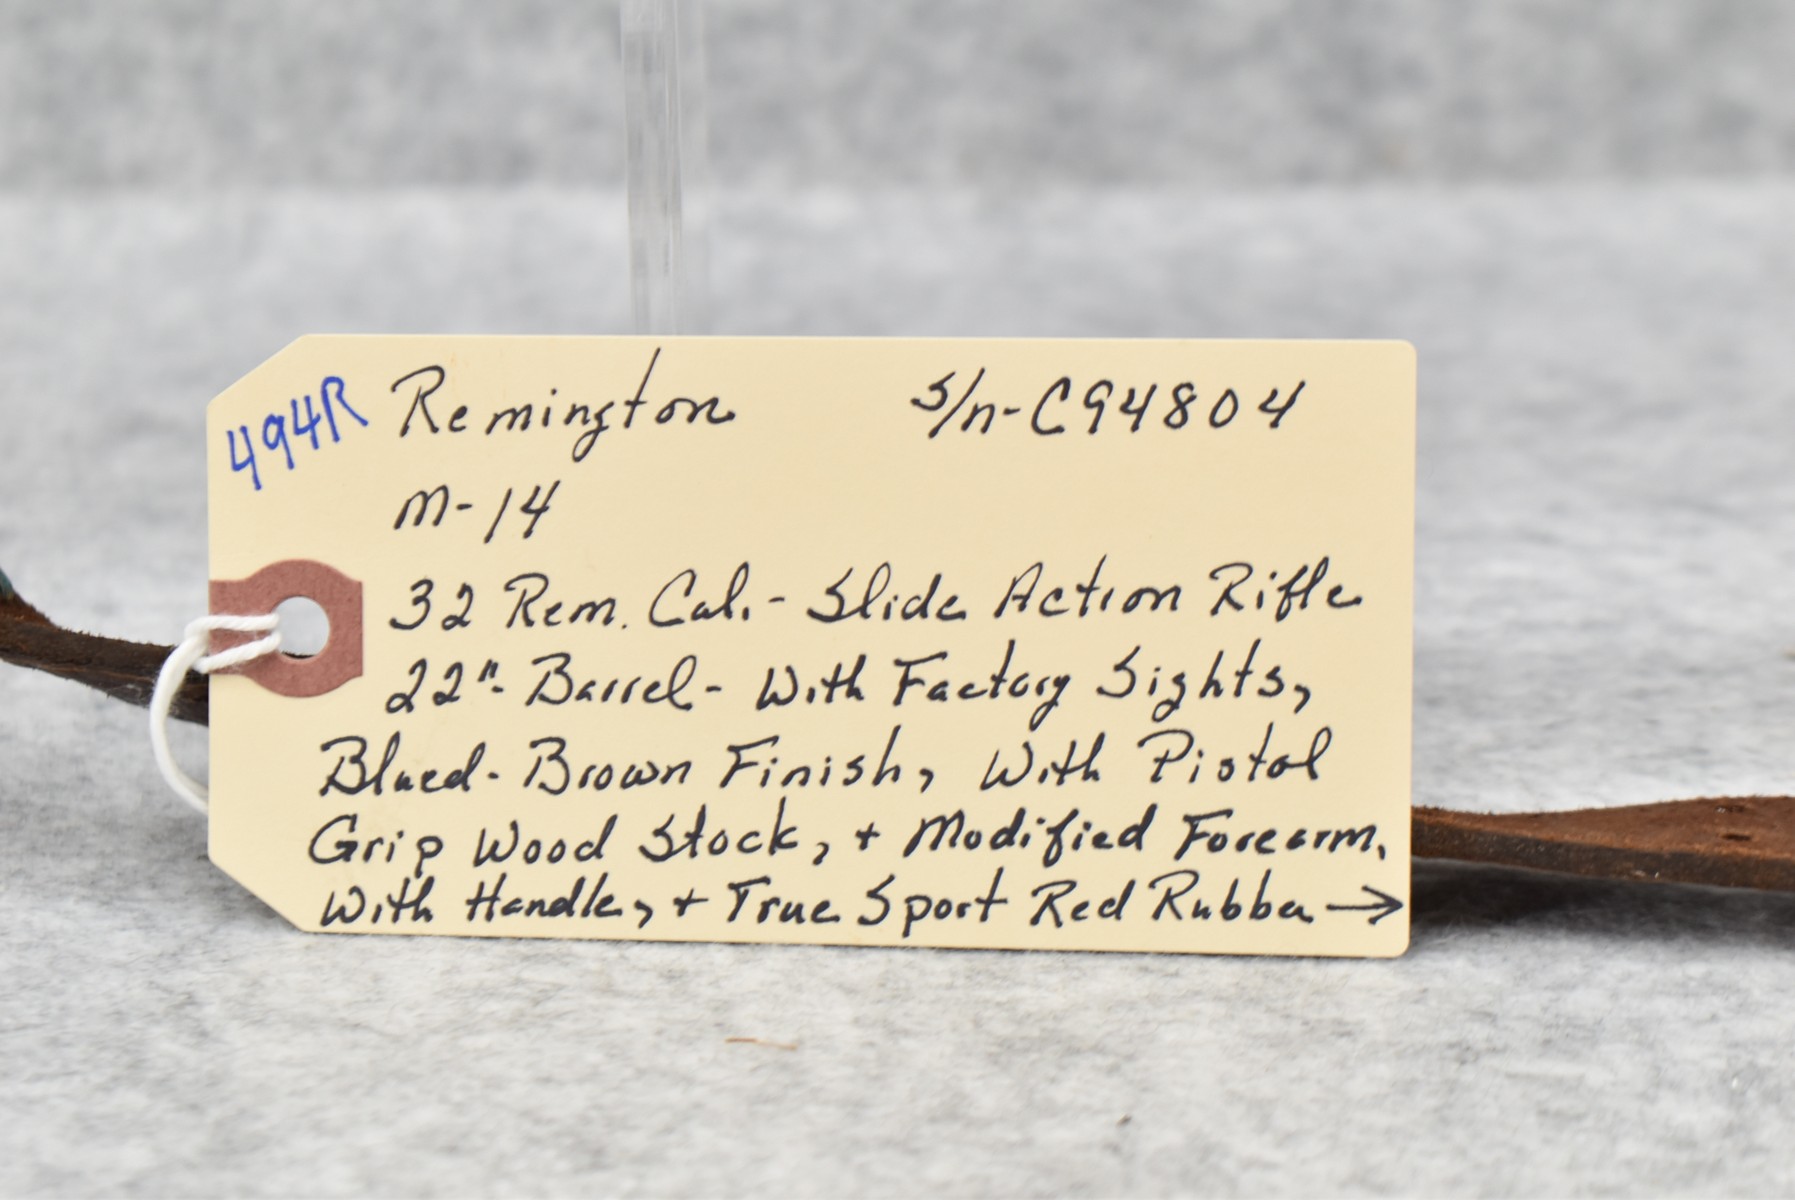 494R Remington S/n-C94804
M-14
32 Rem. Cal. - Slide Action Rifle
22"- Barrel - With Factory Sights,
Blued - Brown Finish, With Pistol
Grip Wood Stock, + Modified Forearm,
With Handle, + True Sport Red Rubber →